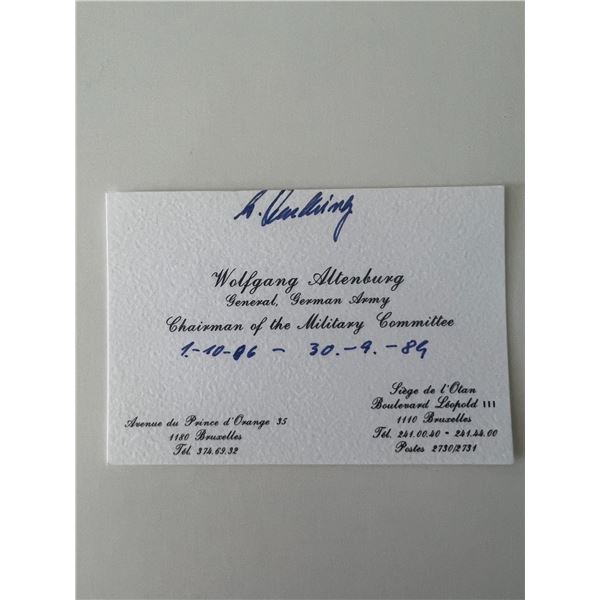 Wolfgang Altenburg
General, German Army
Chairman of the Military Committee
1.-10-86 - 30.-9.-89
Avenue du Prince d'Orange 35
1180 Bruxelles
Tél. 374.69.32
Siège de l'Otan
Boulevard Léopold III
1110 Bruxelles
Tél. 241.00.40 - 241.44.00
Postes 2730/2731